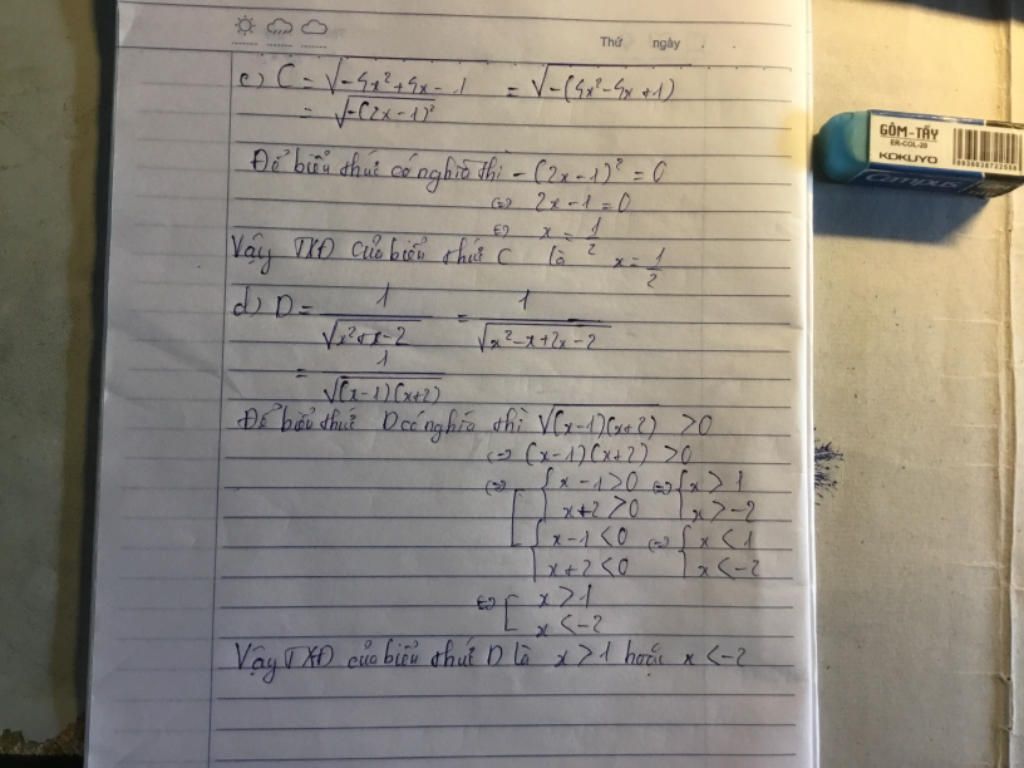 Thứ ngày
c) C = √-4x²+4x-1 = √-(4x²-4x+1)
= √-(2x-1)²
Để biểu thức có nghĩa thì -(2x-1)² = 0
⇔ 2x-1=0
⇔ x = 1/2
Vậy TXĐ của biểu thức C là x = 1/2
d) D = 1/√x²+x-2 = 1/√x²-x+2x-2
= 1/√(x-1)(x+2)
Để biểu thức D có nghĩa thì √(x-1)(x+2) >0
⇔ (x-1)(x+2) >0
⇔ [ { x-1>0 ⇔ { x>1
x+2>0 x>-2
{ x-1<0 ⇔ { x<1
x+2<0 x<-2
⇔ [ x>1
x<-2
Vậy TXĐ của biểu thức D là x>1 hoặc x<-2
GÔM-TẨY
ER-COL-20
KOKUYO
Campus